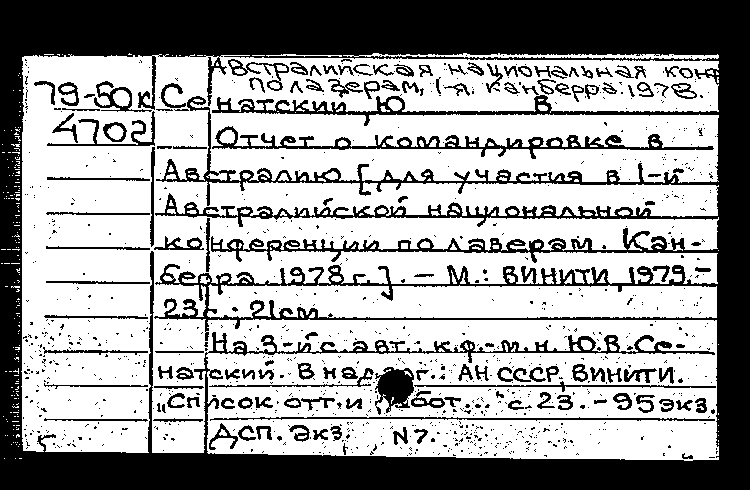 Австралийская национальная конф
по лазерам, 1-я, Канберра. 1978.
79-50к Сенатский, Ю В
4702 Отчет о командировке в
Австралию [для участия в 1-й
Австралийской национальной
конференции по лазерам. Кан-
берра. 1978 г.]. - М.: ВИНИТИ, 1979. -
23с.; 21см.
На 3-й с. авт.: к.ф.-м.н. Ю.В. Се-
натский. В над.заг.: АН СССР, ВИНИТИ.
„Список отт. и работ..." с 23. - 95 экз.
ДСП. Экз. N 7.